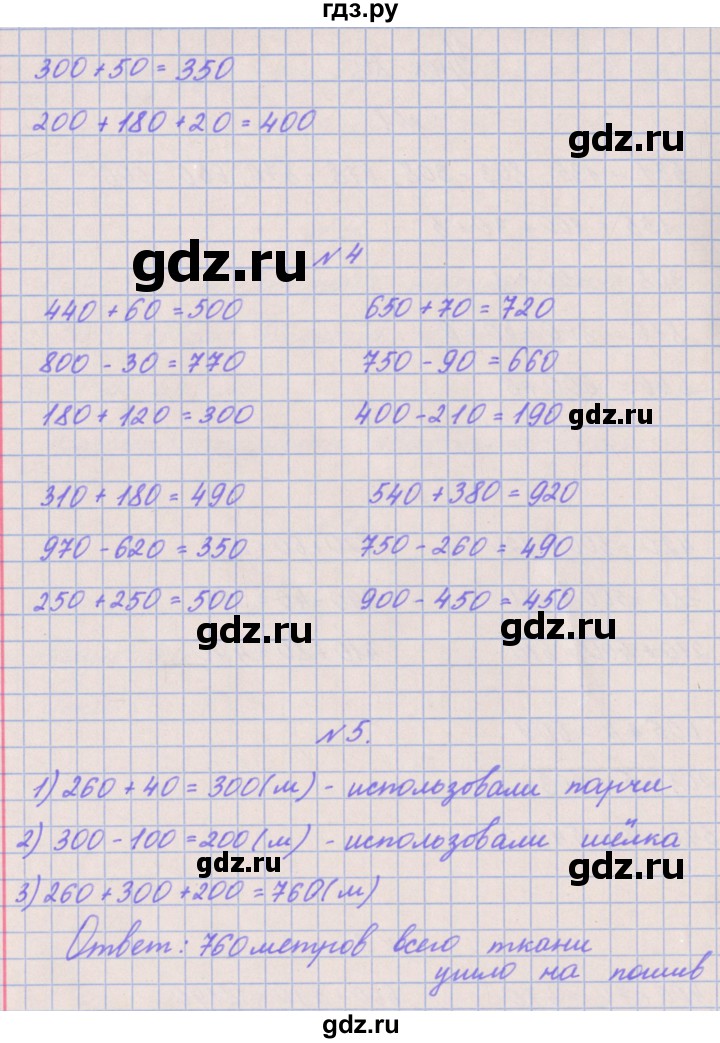 гдз.ру
300 + 50 = 350
200 + 180 + 20 = 400
gdz.ru
gdz.ru
№ 4
440 + 60 = 500 650 + 70 = 720
800 - 30 = 770 750 - 90 = 660
180 + 120 = 300 400 - 210 = 190
gdz.ru
310 + 180 = 490 540 + 380 = 920
970 - 620 = 350 750 - 260 = 490
250 + 250 = 500 900 - 450 = 450
gdz.ru
gdz.ru
№ 5.
1) 260 + 40 = 300 (м) - использовали парчи
2) 300 - 100 = 200 (м) - использовали шёлка
gdz.ru
gdz.ru
3) 260 + 300 + 200 = 760 (м)
Ответ: 760 метров всего ткани
ушло на пошив
gdz.ru